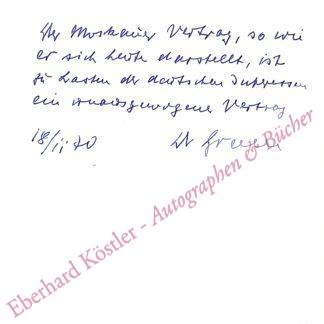 Der Moskauer Vertrag, so wie
er sich heute darstellt, ist
zu Lasten der deutschen Interessen
ein unausgewogener Vertrag
18/11 70
Eberhard Köstler - Autographen & Bücher